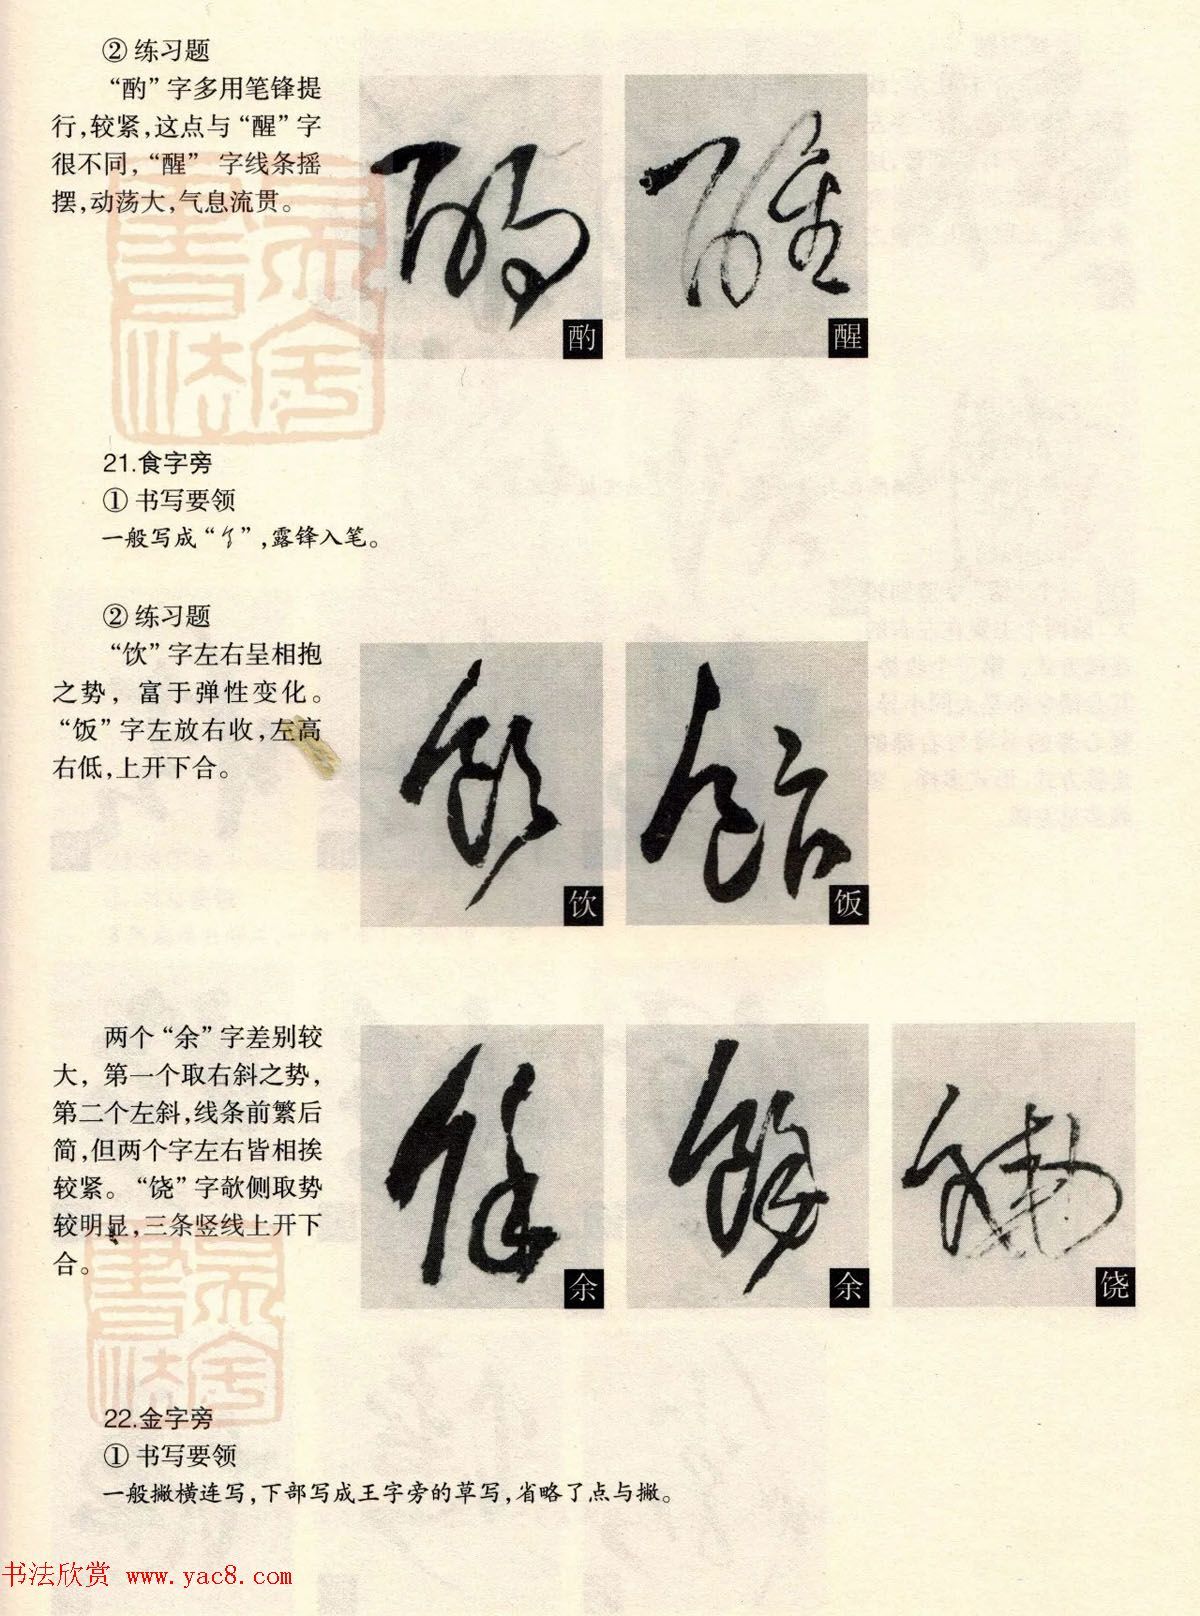 ② 练习题
“酌”字多用笔锋提
行,较紧,这点与“醒”字
很不同,“醒” 字线条摇
摆,动荡大,气息流贯。
酌
醒
21.食字旁
① 书写要领
一般写成“饣”,露锋入笔。
② 练习题
“饮”字左右呈相抱
之势, 富于弹性变化。
“饭”字左放右收,左高
右低,上开下合。
饮
饭
两个“余”字差别较
大, 第一个取右斜之势,
第二个左斜,线条前繁后
简,但两个字左右皆相挨
较紧。“饶”字欹侧取势
较明显,三条竖线上开下
合。
余
余
饶
22.金字旁
① 书写要领
一般撇横连写,下部写成王字旁的草写,省略了点与撇。
书法欣赏 www.yac8.com